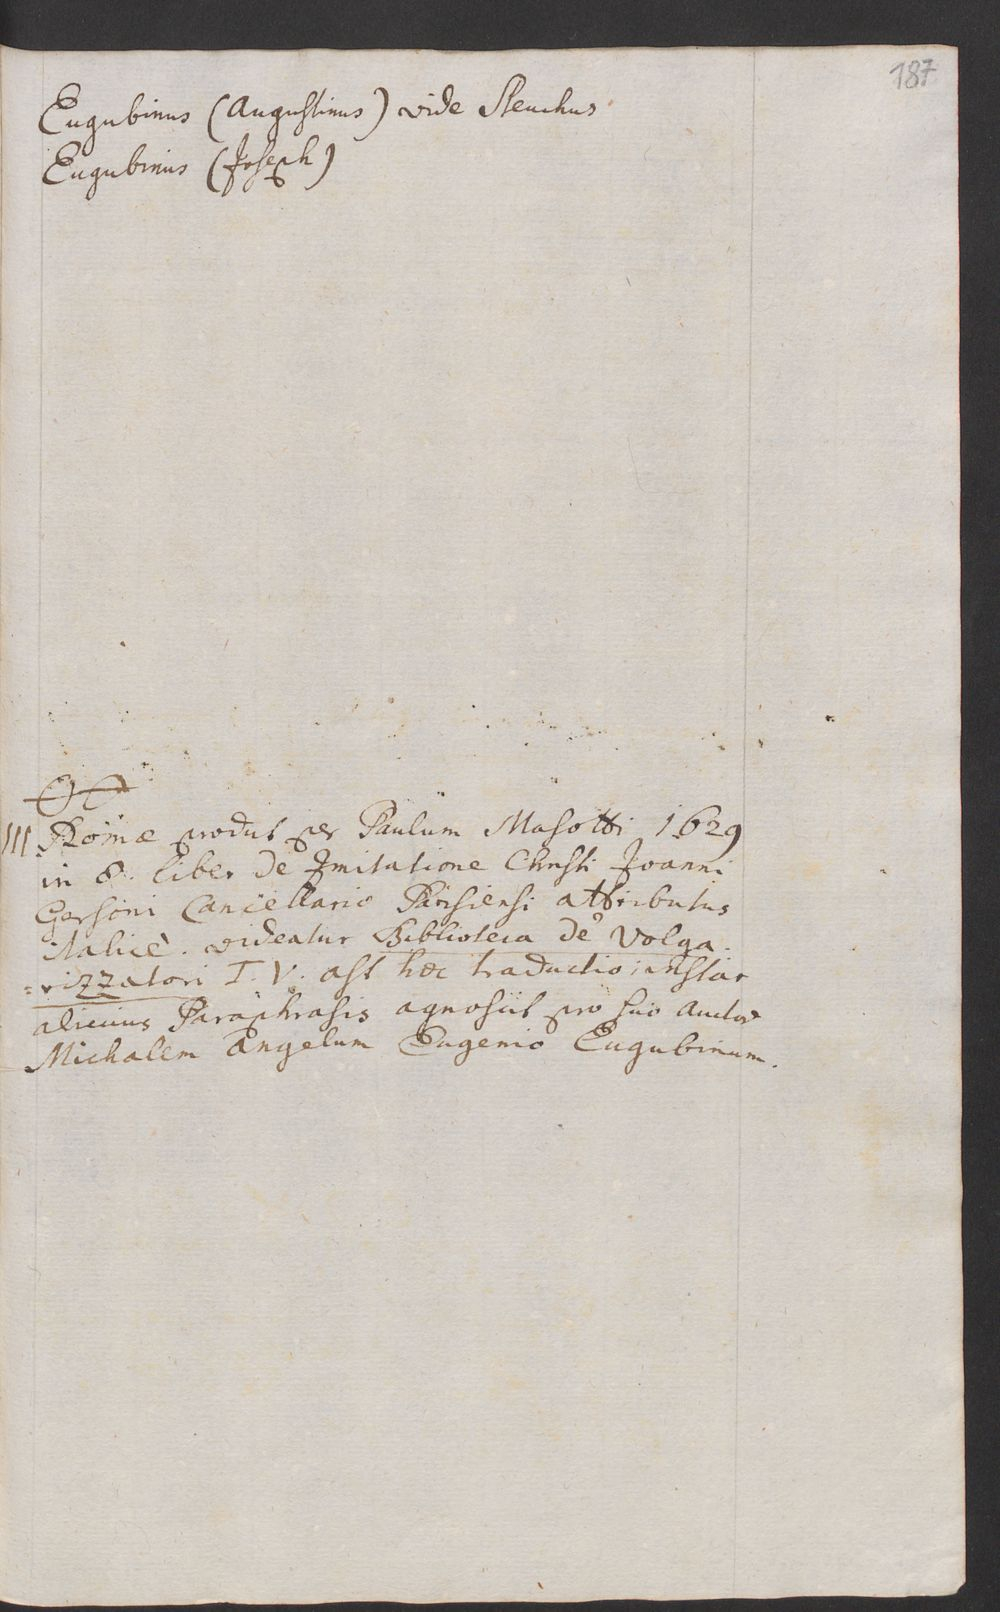 187
Eugubinus (Augustinus) vide Steuchus
Eugubinus (Joseph)
III Romæ prodijt per Paulum Masotti 1629
in 8. liber de Imitatione Christi Joanni
Gersoni Cancellario Parisiensi attributus
italicè. videatur Biblioteca de Volga-
=rizzatori T. V. ast hæc traductio instar
alicuius Paraphrasis agnoscit pro suo Auctore
Michalem Angelum Eugenio Eugubinum.